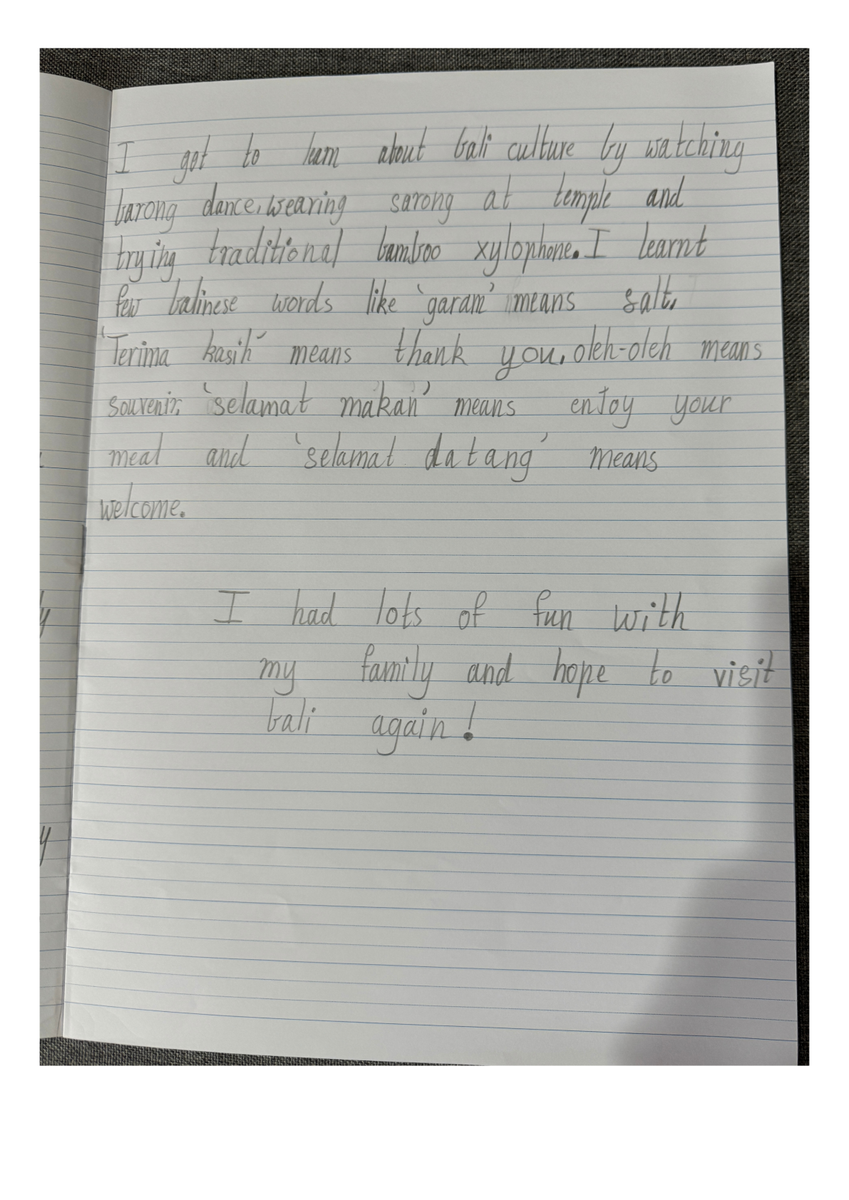 I got to learn about bali culture by watching
barong dance, wearing sarong at temple and
trying traditional bamboo xylophone. I learnt
few balinese words like 'garam' means salt,
'Terima kasih' means thank you, oleh-oleh means
souvenir, 'selamat makan' means enjoy your
meal and 'selamat datang' means
welcome.
I had lots of fun with
my family and hope to visit
bali again!